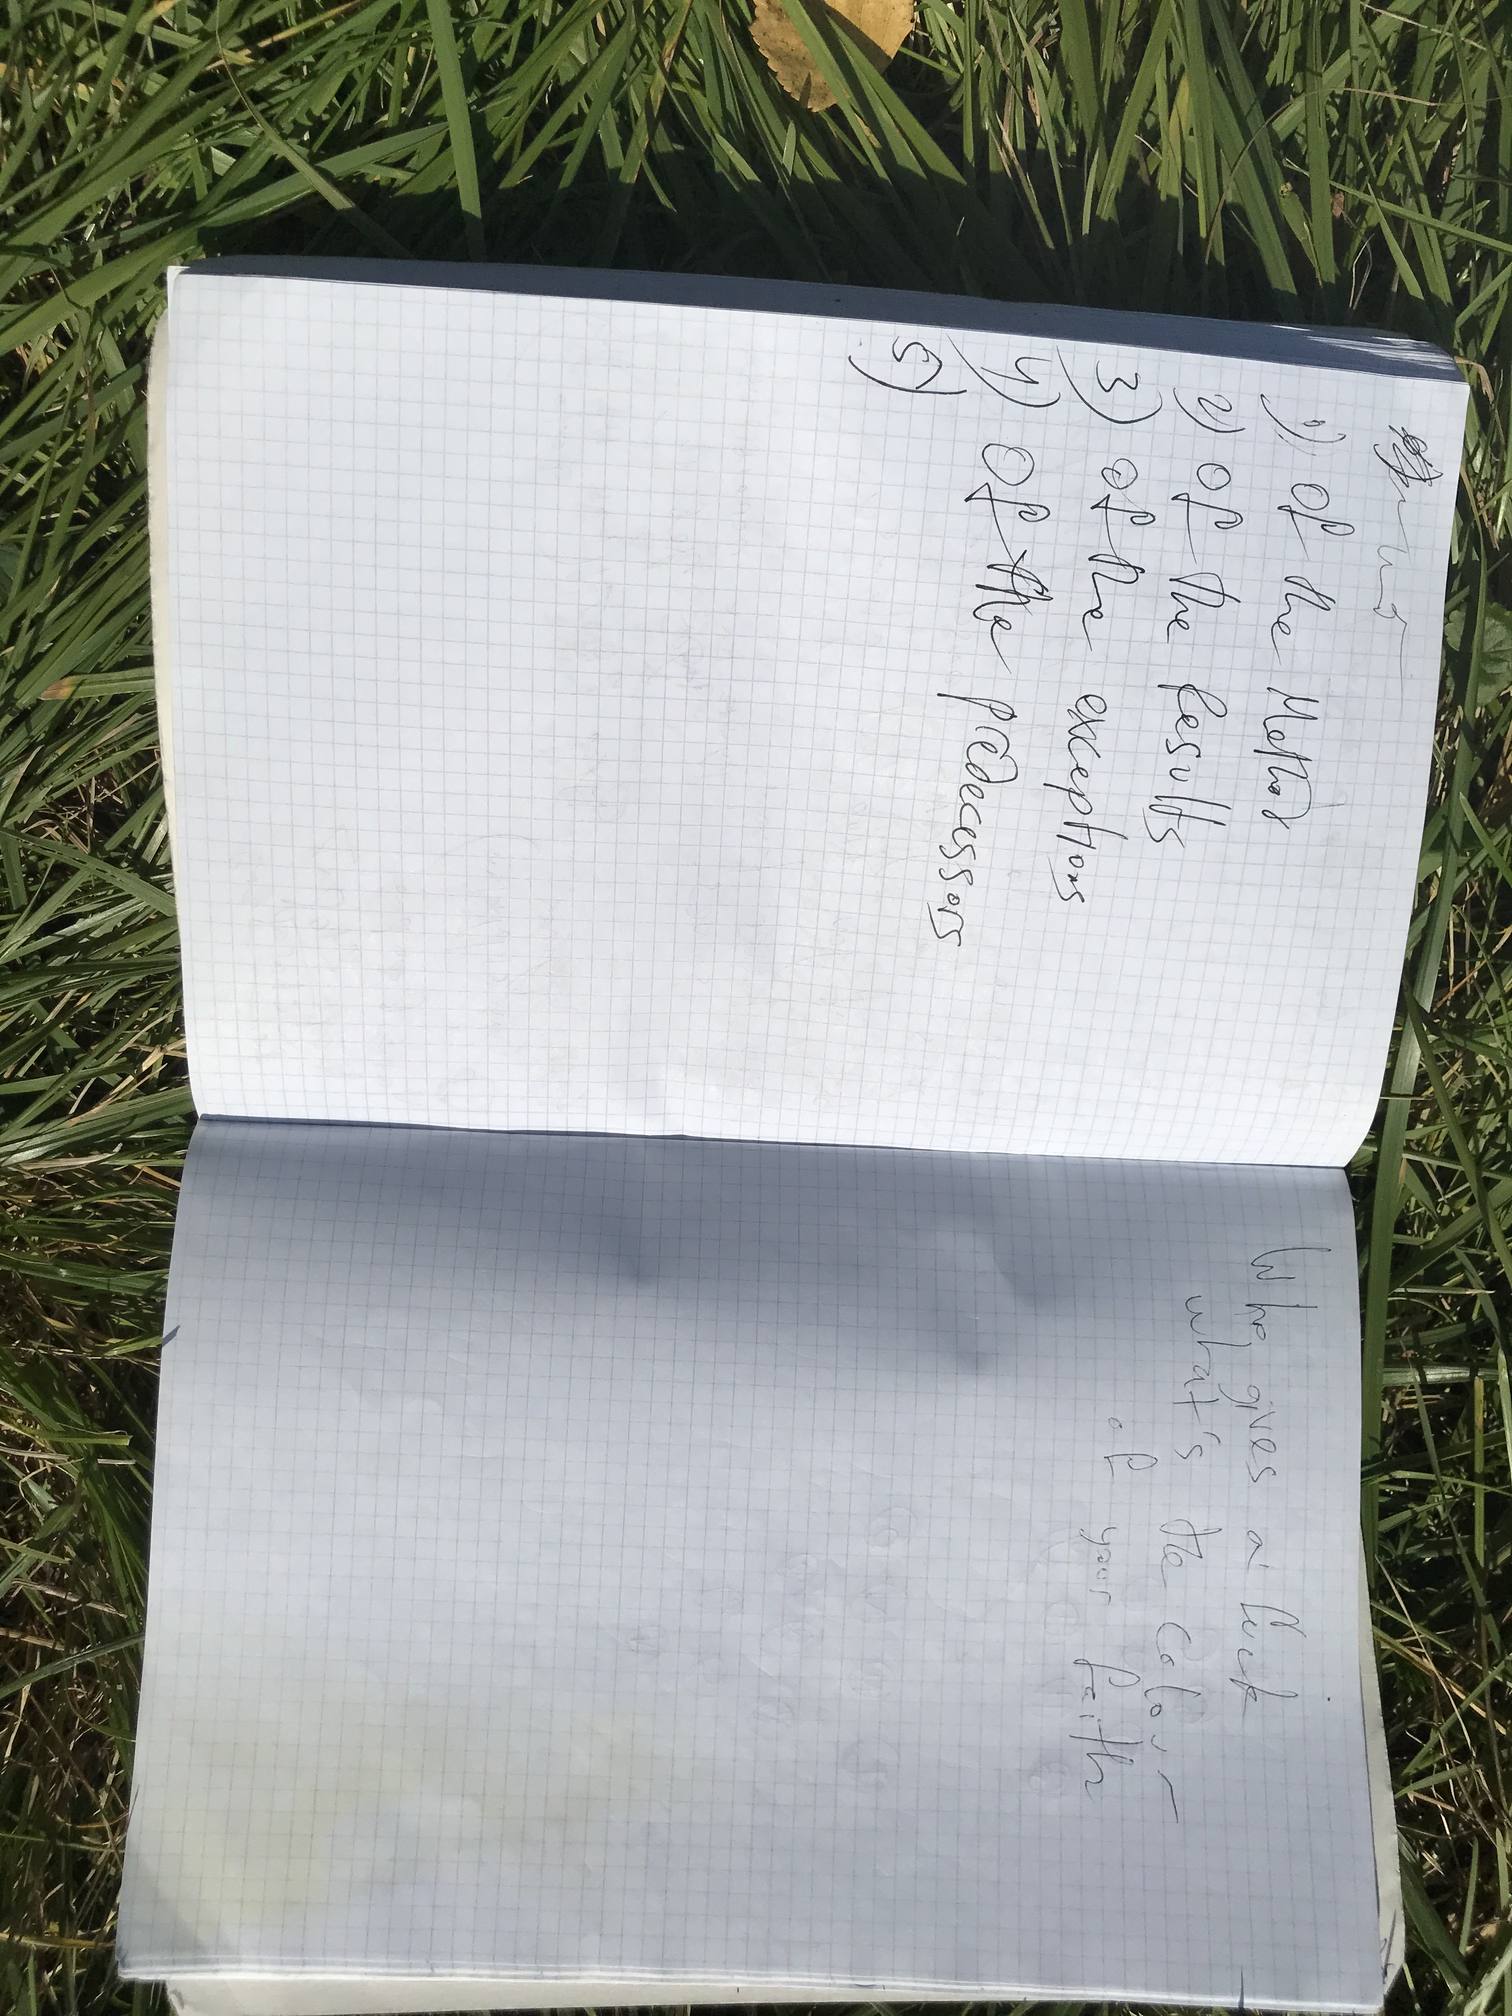 1) Of the Method
2) Of the Results
3) Of the exceptions
4) Of the predecessors
5)
Who gives a fuck
what's the colour
of your faith